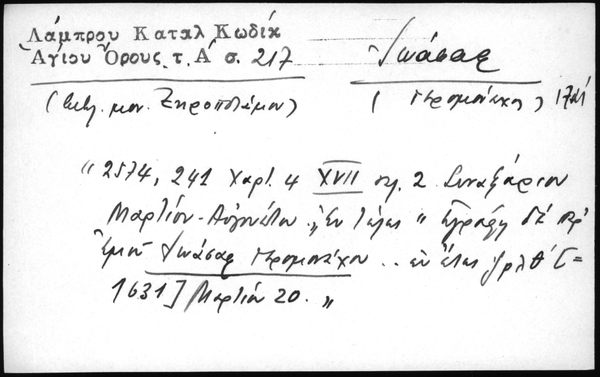 Λάμπρου Καταλ Κωδίκ
Ἁγίου Ὄρους τ. Α΄ σ. 217
Ἰωάσαφ
(Βιβλ. μον. Ξηροποτάμου)
(Ἱερομονάχου)
" 2574, 241 Χαρτ. 4 XVII φυλ. 2. Συναξάριον
Μαρτίου - Αὐγούστου. „Ἐν τέλει " Ἐγράφη δὲ παρ'
ἐμοῦ Ἰωάσαφ Ἱερομονάχου .. ἐν ἔτει ζρλθ΄ [=
1631] Μαρτίου 20. "